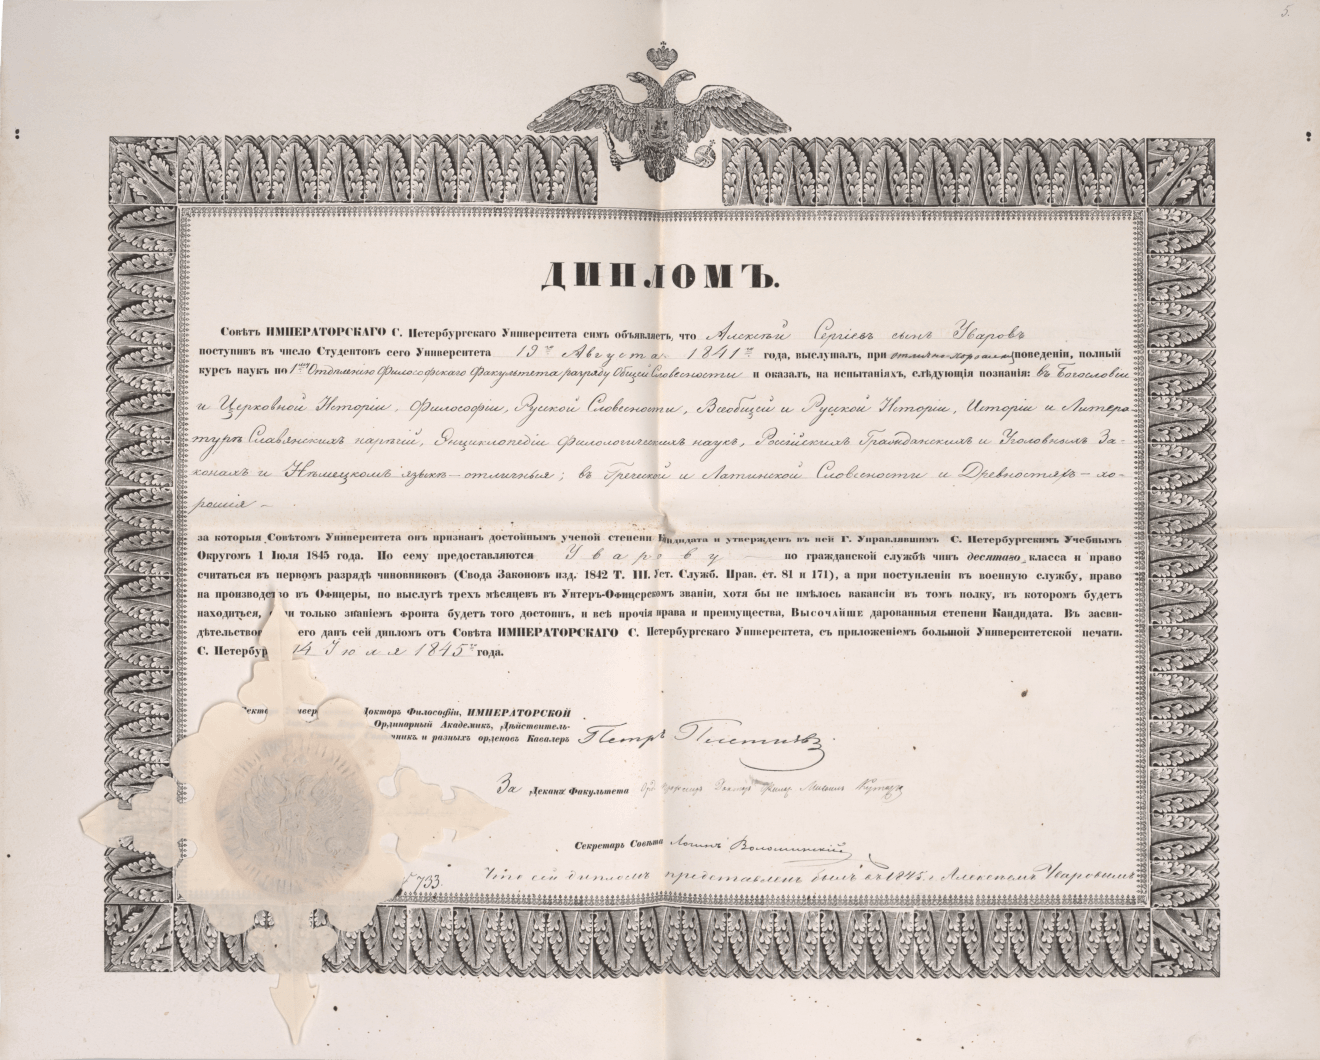 5.
ДИПЛОМЪ.
Совѣтъ ИМПЕРАТОРСКАГО С. Петербургскаго Университета симъ объявляетъ, что Алексѣй Сергѣевъ сынъ Уваровъ
поступивъ въ число Студентовъ сего Университета 19го Августа 1841го года, выслушалъ, при отлично-хорошемъ поведеніи, полный
курсъ наукъ по 1му Отдѣленію Философскаго Факультета разряду Общей Словесности и оказалъ, на испытаніяхъ, слѣдующія познанія: въ Богословіи
и Церковной Исторіи, Философіи, Русской Словесности, Всеобщей и Русской Исторіи, Исторіи и Литера-
турѣ Славянскихъ нарѣчій, Энциклопедіи филологическихъ наукъ, Россійскихъ Гражданскихъ и Уголовныхъ За-
конахъ и Нѣмецкомъ языкѣ — отличныя; въ Греческой и Латинской Словесности и Древностяхъ — хо-
рошія —
за которыя Совѣтомъ Университета онъ признанъ достойнымъ ученой степени Кандидата и утвержденъ въ ней Г. Управлявшимъ С. Петербургскимъ Учебнымъ
Округомъ 1 Іюля 1845 года. По сему предоставляются Уварову — по гражданской службѣ чинъ десятаго класса и право
считаться въ первомъ разрядѣ чиновниковъ (Свода Законовъ изд. 1842 Т. III. Уст. Служб. Прав. ст. 81 и 171), а при поступленіи въ военную службу, право
на производство въ Офицеры, по выслугѣ трехъ мѣсяцевъ въ Унтеръ-Офицерскомъ званіи, хотя бы не имѣлось вакансіи въ томъ полку, въ которомъ будетъ
находиться, если только знаніемъ фронта будетъ того достоинъ, и всѣ прочія права и преимущества, ВЫСОЧАЙШЕ дарованныя степени Кандидата. Въ засви-
дѣтельство чего данъ сей дипломъ отъ Совѣта ИМПЕРАТОРСКАГО С. Петербургскаго Университета, съ приложеніемъ большой Университетской печати.
С. Петербур 14 Іюля 1845го года.
Докторъ Философіи, ИМПЕРАТОРСКОЙ
Ординарный Академикъ, Дѣйствитель-
никъ и разныхъ орденовъ Кавалеръ Петръ Плетневъ
За Декана Факультета Орд. Профессоръ Докторъ Филос. Михаилъ Куторга
Секретарь Совѣта Логинъ Воломинскій
733.
Что сей дипломъ представленъ былъ въ 1845 г. Алексѣемъ Уваровымъ